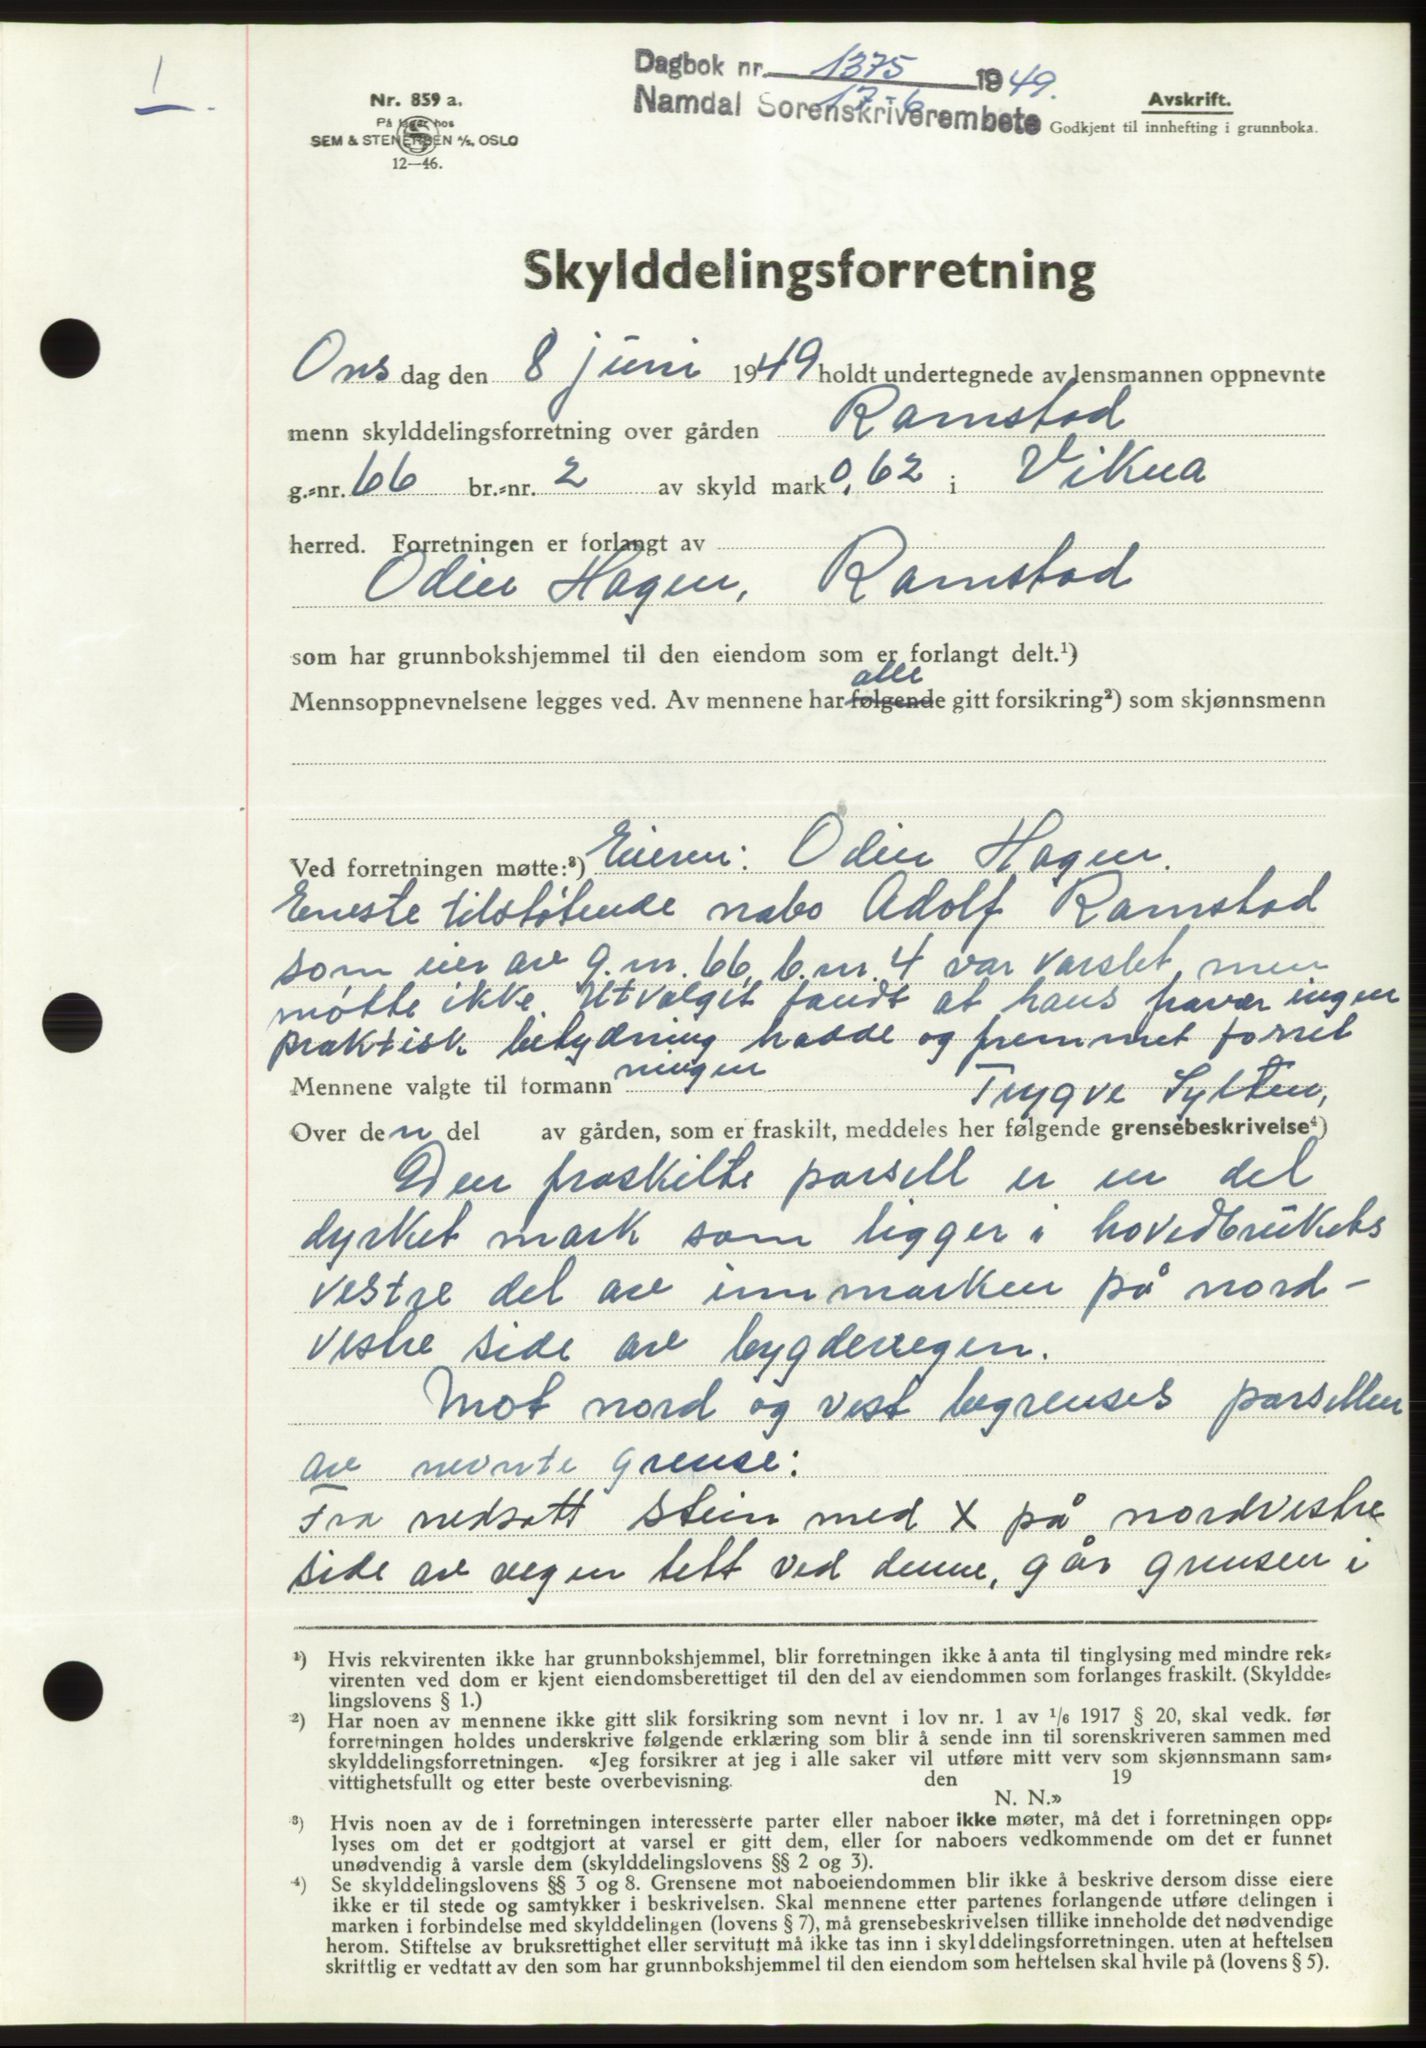 1
Dagbok nr. 1375 1949.
Namdal Sorenskriverembete 17-6
Nr. 859 a.
På lager hos
SEM & STENERSEN A/S, OSLO
12—46.
Avskrift.
Godkjent til innhefting i grunnboka.
Skylddelingsforretning
Ons dag den 8 juni 1949 holdt undertegnede av lensmannen oppnevnte
menn skylddelingsforretning over gården Ramstad
g.=nr. 66 br.=nr. 2 av skyld mark 0,62 i Vikna
herred. Forretningen er forlangt av
Odin Hagen, Ramstad
som har grunnbokshjemmel til den eiendom som er forlangt delt.¹)
alle
Mennsoppnevnelsene legges ved. Av mennene har følgende gitt forsikring²) som skjønnsmenn
Ved forretningen møtte:³) Eieren: Odin Hagen.
Eneste tilstøtende nabo Adolf Ramstad
som eier av g.nr. 66, b.nr. 4 var varslet, men
møtte ikke. Utvalget fandt at hans fravær ingen
praktisk betydning hadde og fremmet forret
ningen
Mennene valgte til formann Trygve Sylten,
Over den del av gården, som er fraskilt, meddeles her følgende grensebeskrivelse⁴)
Den fraskilte parsell er en del
dyrket mark som ligger i hovedbrukets
vestre del av innmarken på nord-
vestre side av bygdevegen.
Mot nord og vest begrenses parsellen
av nevnte grense:
Fra nedsatt stein med X på nordvestre
side av vegen tett ved denne, går grensen i
¹) Hvis rekvirenten ikke har grunnbokshjemmel, blir forretningen ikke å anta til tinglysing med mindre rek=
virenten ved dom er kjent eiendomsberettiget til den del av eiendommen som forlanges fraskilt. (Skyldde=
lingslovens § 1.)
²) Har noen av mennene ikke gitt slik forsikring som nevnt i lov nr. 1 av ¹/₆ 1917 § 20, skal vedk. før
forretningen holdes underskrive følgende erklæring som blir å sende inn til sorenskriveren sammen med
skylddelingsforretningen. «Jeg forsikrer at jeg i alle saker vil utføre mitt verv som skjønnsmann sam=
vittighetsfullt og etter beste overbevisning. den 19
N. N.»
³) Hvis noen av de i forretningen interesserte parter eller naboer ikke møter, må det i forretningen opp=
lyses om det er godtgjort at varsel er gitt dem, eller for naboers vedkommende om det er funnet
unødvendig å varsle dem (skylddelingslovens §§ 2 og 3).
⁴) Se skylddelingslovens §§ 3 og 8. Grensene mot naboeiendommen blir ikke å beskrive dersom disse eiere
ikke er til stede og samtykker i beskrivelsen. Skal mennene etter partenes forlangende utføre delingen i
marken i forbindelse med skylddelingen (lovens § 7), må grensebeskrivelsen tillike inneholde det nødvendige
herom. Stiftelse av bruksrettighet eller servitutt må ikke tas inn i skylddelingsforretningen. uten at heftelsen
skriftlig er vedtatt av den som har grunnbokshjemmel til den eiendom som heftelsen skal hvile på (lovens § 5).